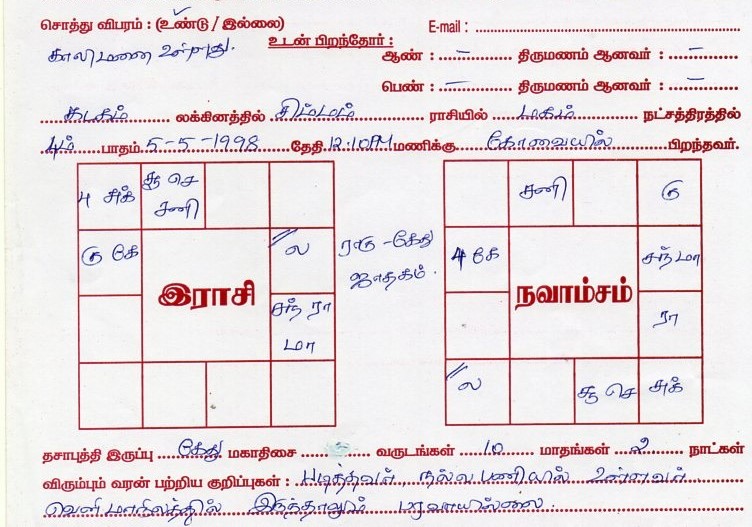 சொத்து விபரம் : (உண்டு / இல்லை) E-mail :
காலிமனை உள்ளது. உடன் பிறந்தோர் :
ஆண் : – திருமணம் ஆனவர் : –
பெண் : – திருமணம் ஆனவர் : –
கடகம் லக்கினத்தில் சிம்மம் ராசியில் மகம் நட்சத்திரத்தில்
4ம் பாதம் 5-5-1998 தேதி 12.10PM மணிக்கு கோவையில் பிறந்தவர்.
4 சுக் சூ செ சனி
கு கே ல
இராசி
சந் ரா மா
ராகு - கேது
ஜாதகம்.
சனி கு
4 கே சந் மா
நவாம்சம்
ரா
ல சூ செ சுக்
தசாபுத்தி இருப்பு கேது மகாதிசை வருடங்கள் 10 மாதங்கள் 2 நாட்கள்
விரும்பும் வரன் பற்றிய குறிப்புகள் : படித்தவர், நல்ல பணியில் உள்ளவர்
வெளிமாநிலத்தில் இருந்தாலும் பரவாயில்லை.